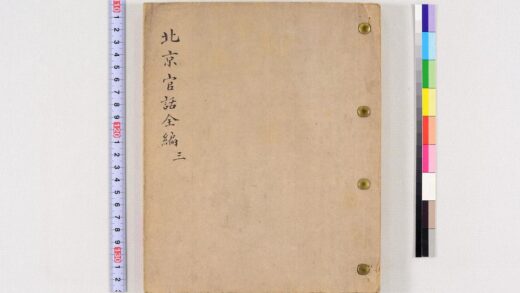 北京官話全編
三